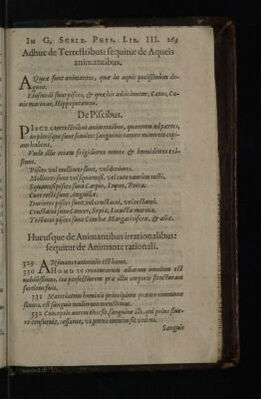 IN G. SCRIB. PHYS. LIB. III. 263
Adhuc de Terrestribus: sequitur de Aqueis
animantibus.
AQueæ sunt animantes, quæ in aquis potissimùm de-
gunt.
Eiusmodi sunt pisces, & quæ his adiciuntur, Canis, Ca-
nis marinus, Hippopotamus.
De Piscibus.
PISCES à terrestribus animantibus, quantum ad partes,
in plerisque sunt similes: sanguinis tamen minorem copi-
am habent,
Vnde illis etiam frigidiores multò & humidiores exi-
stunt.
Pisces vel molliores sunt, vel duriores.
Molliores sunt vel squamosi, vel cute tantùm tecti.
Squamosi pisces sunt Carpio, Lupus, Perca.
Cute tecti sunt Anguilla.
Duriores pisces sunt, vel crustacei, vel testacei.
Crustacei sunt Cancer, Sepia, Locusta marina.
Testacei pisces sunt Conchæ Margariferæ, & aliæ.
Hucusque de Animantibus irrationalibus:
sequitur de Animante rationali.
329 ANimans rationale est homo.
330 HOMO vt creaturarum aliarum omnium est
nobilissimus, ita perfectiorem præ illis corporis structuram
sortitus fuit.
331 Materia tum hominis principium præter commune
semen, est sanguis mulierum menstruus.
332 Conceptio autem fit, si sanguine illo, qui prius flue-
re consueuit, cessante, vt potest omnium sit vedeni.
Sanguis